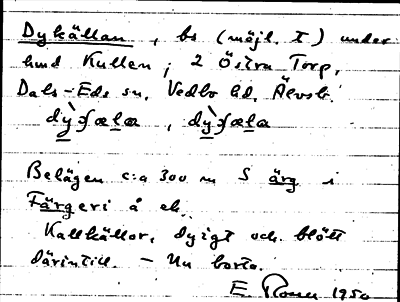 Dykällan, bs (möjl. t) under
hmd Kullen; 2 Östra Torp,
Dals-Eds sn, Vedbo hd, Älvsb.
dỳʃæla, dỳʃæla
Belägen c:a 300 m S ärg i
Färgeri å ek.
Kallkällor, dyigt och blött
därintill. – Nu borta.
E. 1950